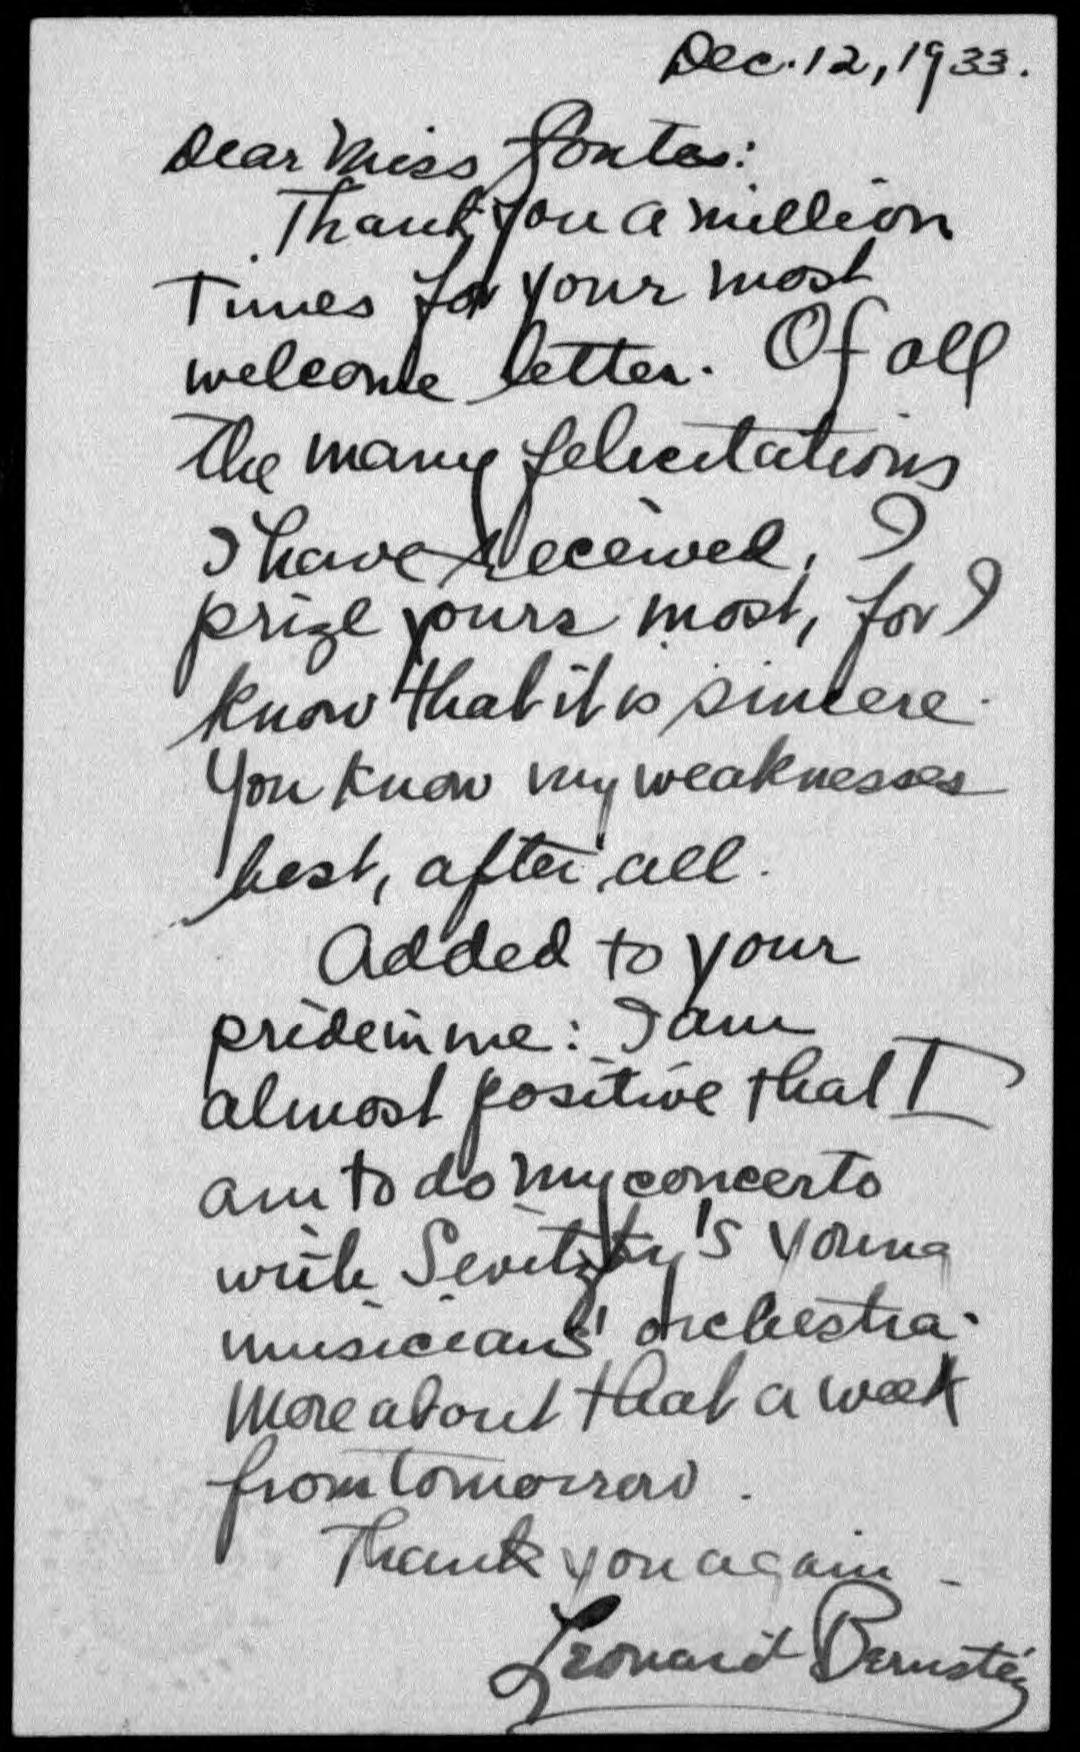 Dec. 12, 1933.
Dear Miss Coates:
Thank you a million
times for your most
welcome letter. Of all
the many felicitations
I have received, I
prize yours most, for I
know that it is sincere.
You know my weaknesses
best, after all.
Added to your
pride in me: I am
almost positive that I
am to do my concerto
with Sevitzky's young
musicians' orchestra.
More about that a week
from tomorrow.
Thank you again -
Leonard Bernstein